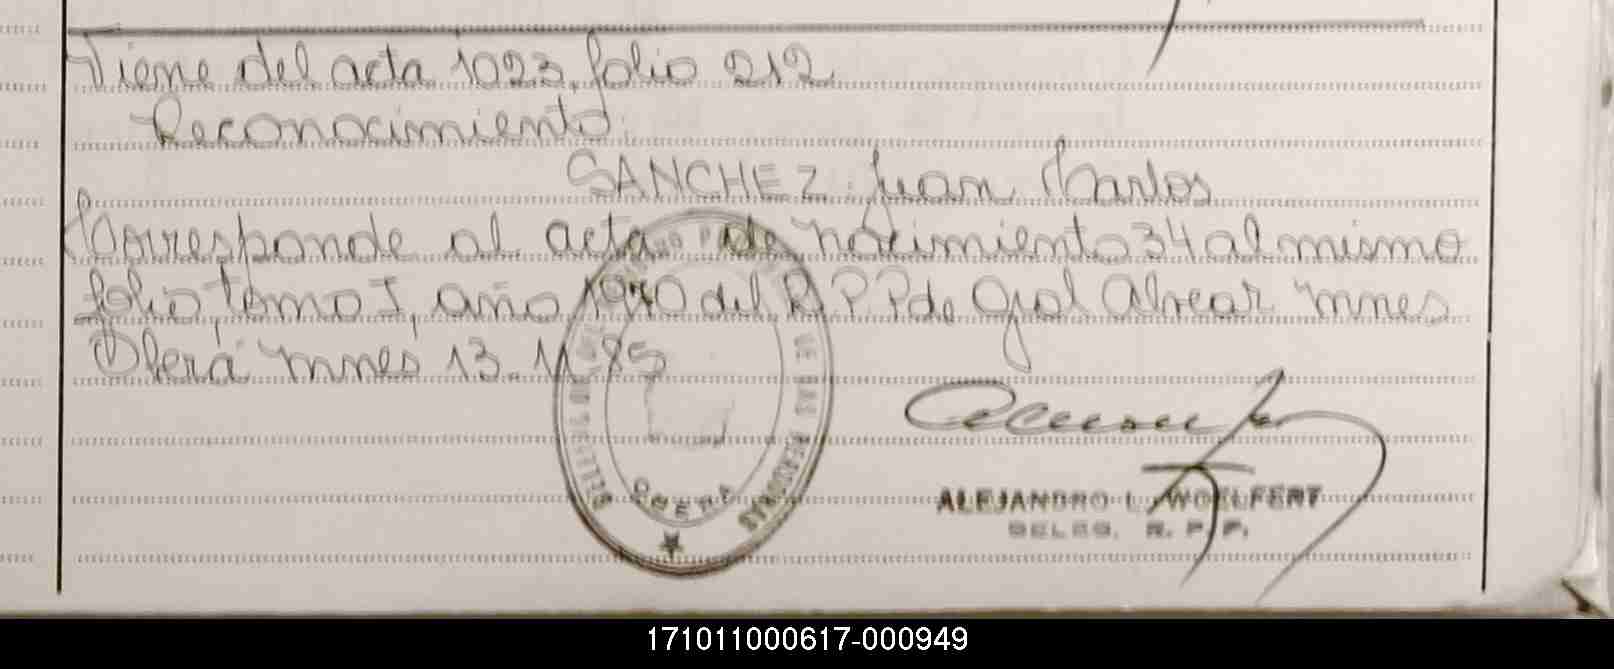 Viene del acta 1023, folio 212
Reconocimiento:
SANCHEZ: Juan Carlos
Corresponde al acta de nacimiento 34 al mismo
folio, tomo I, año 1970 del R P P de Gral Alvear Mnes
Oberá Mnes 13.11.85
OBERA
DE LAS PERSONAS
ALEJANDRO L. WOELFERT
DELEG. R. P. P.
171011000617-000949